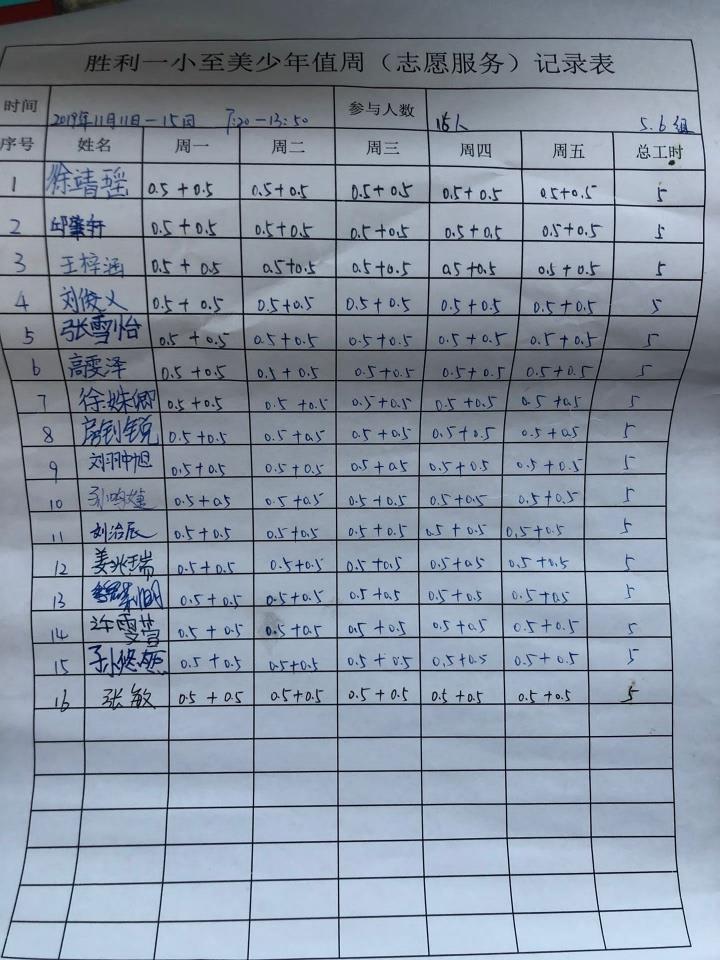 胜利一小至美少年值周（志愿服务）记录表
时间 2019年11月11日－15日 7:20－13:50 参与人数 16人 5.6组
序号 姓名 周一 周二 周三 周四 周五 总工时
1 徐靖瑶 0.5+0.5 0.5+0.5 0.5+0.5 0.5+0.5 0.5+0.5 5
2 邱肇轩 0.5+0.5 0.5+0.5 0.5+0.5 0.5+0.5 0.5+0.5 5
3 王梓涵 0.5+0.5 0.5+0.5 0.5+0.5 0.5+0.5 0.5+0.5 5
4 刘俊义 0.5+0.5 0.5+0.5 0.5+0.5 0.5+0.5 0.5+0.5 5
5 张雪怡 0.5+0.5 0.5+0.5 0.5+0.5 0.5+0.5 0.5+0.5 5
6 高雯泽 0.5+0.5 0.5+0.5 0.5+0.5 0.5+0.5 0.5+0.5 5
7 徐姝卿 0.5+0.5 0.5+0.5 0.5+0.5 0.5+0.5 0.5+0.5 5
8 0.5+0.5 0.5+0.5 0.5+0.5 0.5+0.5 0.5+0.5 5
9 刘翀旭 0.5+0.5 0.5+0.5 0.5+0.5 0.5+0.5 0.5+0.5 5
10 0.5+0.5 0.5+0.5 0.5+0.5 0.5+0.5 0.5+0.5 5
11 刘治辰 0.5+0.5 0.5+0.5 0.5+0.5 0.5+0.5 0.5+0.5 5
12 姜兆瑞 0.5+0.5 0.5+0.5 0.5+0.5 0.5+0.5 0.5+0.5 5
13 0.5+0.5 0.5+0.5 0.5+0.5 0.5+0.5 0.5+0.5 5
14 许雯萱 0.5+0.5 0.5+0.5 0.5+0.5 0.5+0.5 0.5+0.5 5
15 0.5+0.5 0.5+0.5 0.5+0.5 0.5+0.5 0.5+0.5 5
16 张敏 0.5+0.5 0.5+0.5 0.5+0.5 0.5+0.5 0.5+0.5 5